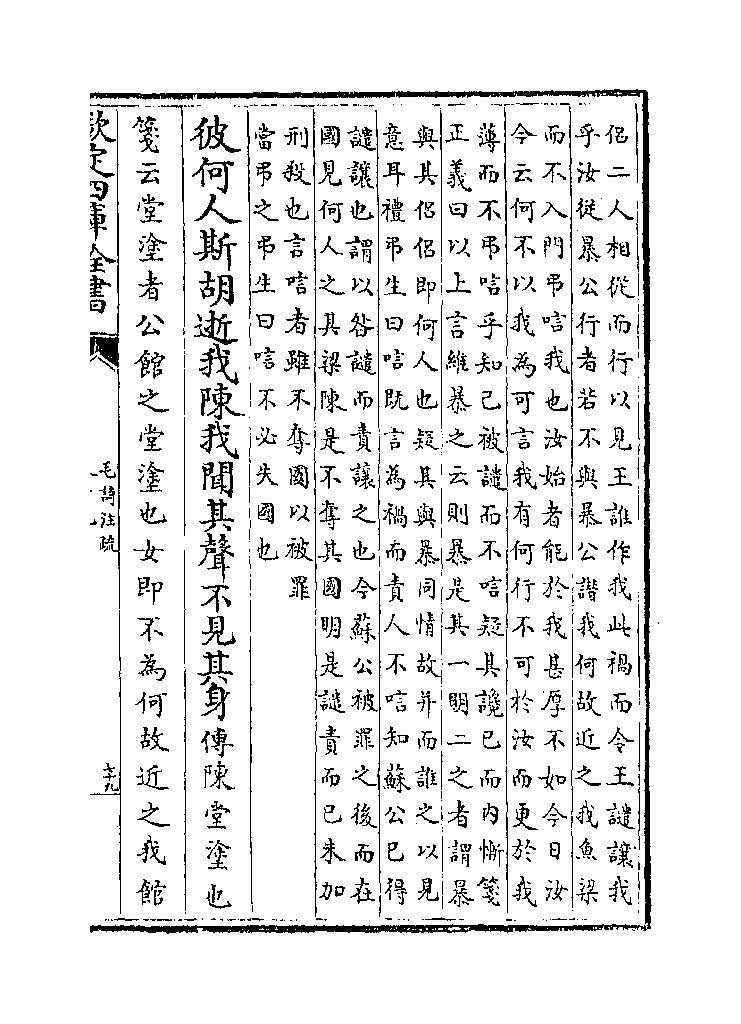 侣二人相從而行以見王誰作我此禍而令王譴讓我
乎汝從暴公行者若不與暴公譖我何故近之我魚梁
而不入門弔唁我也汝始者能於我甚厚不如今日汝
今云何不以我為可言我有何行不可於汝而更於我
薄而不弔唁乎知己被譴而不唁疑其讒已而内慚箋
正義曰以上言維暴之云則暴是其一明二之者謂暴
與其侣侣即何人也疑其與暴同情故并而誰之以見
意耳禮弔生曰唁既言為禍而責人不唁知蘇公已得
譴讓也謂以咎譴而責讓之也今蘇公被罪之後而在
國見何人之其梁陳是不奪其國明是譴責而已未加
刑殺也言唁者雖不奪國以被罪
當弔之弔生曰唁不必失國也
彼何人斯胡逝我陳我聞其聲不見其身傳陳堂塗也
箋云堂塗者公館之堂塗也女即不為何故近之我館
欽定四庫全書
毛詩注疏